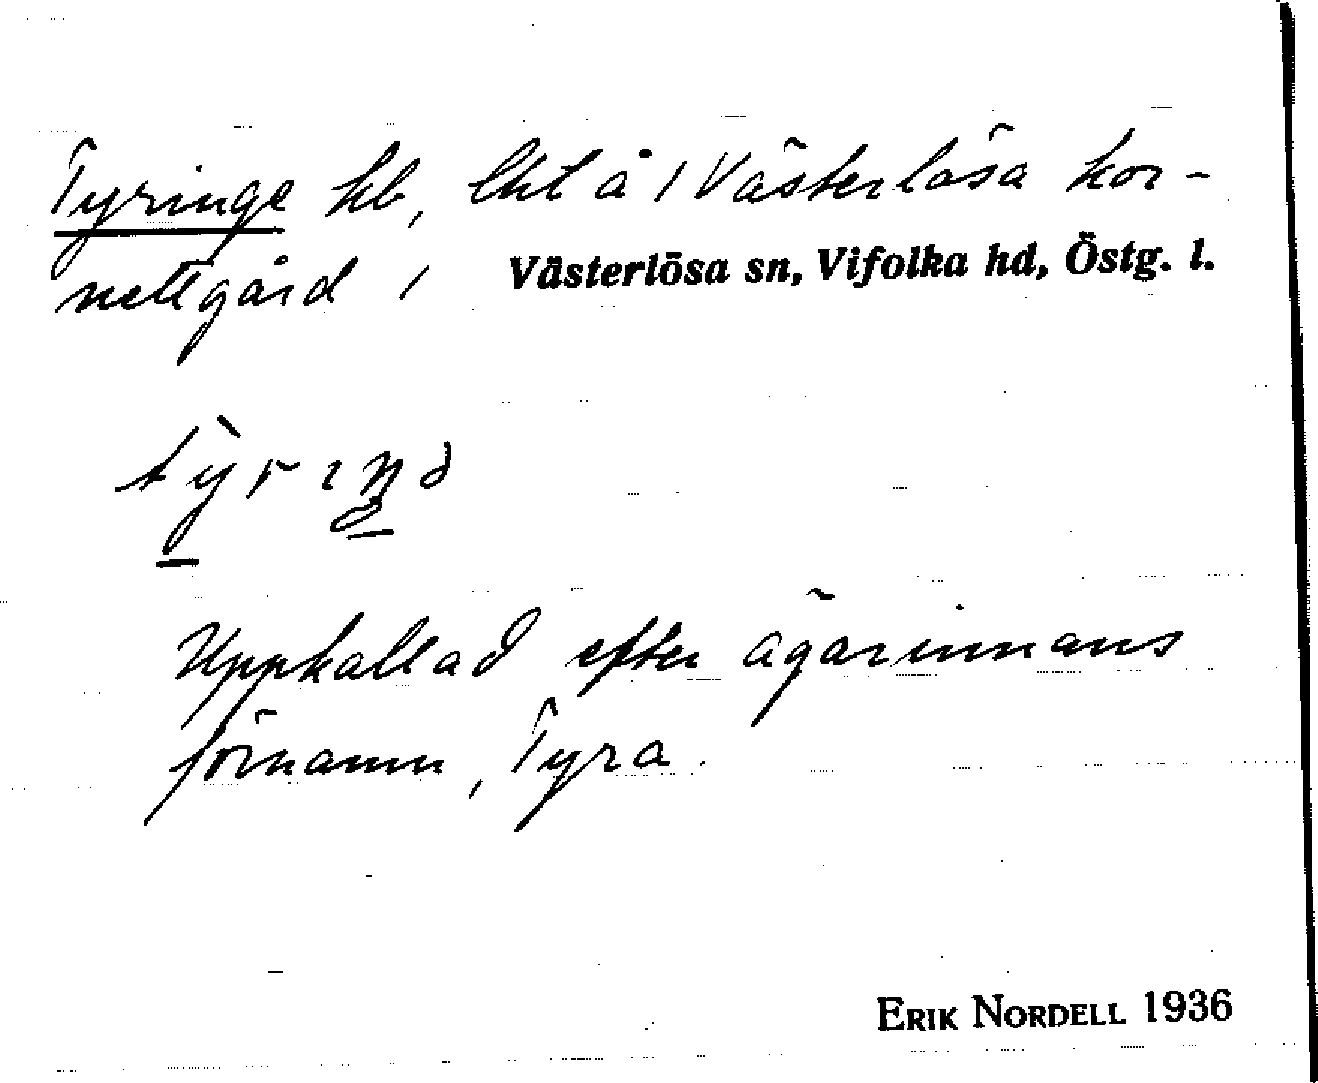 Tyringe hb, lht å 1 Västerlösa kor-
nettgård, 1 Västerlösa sn, Vifolka hd, Östg. l.
Uppkallad efter ägarinnans
förnamn, Tyra.
ERIK NORDELL 1936